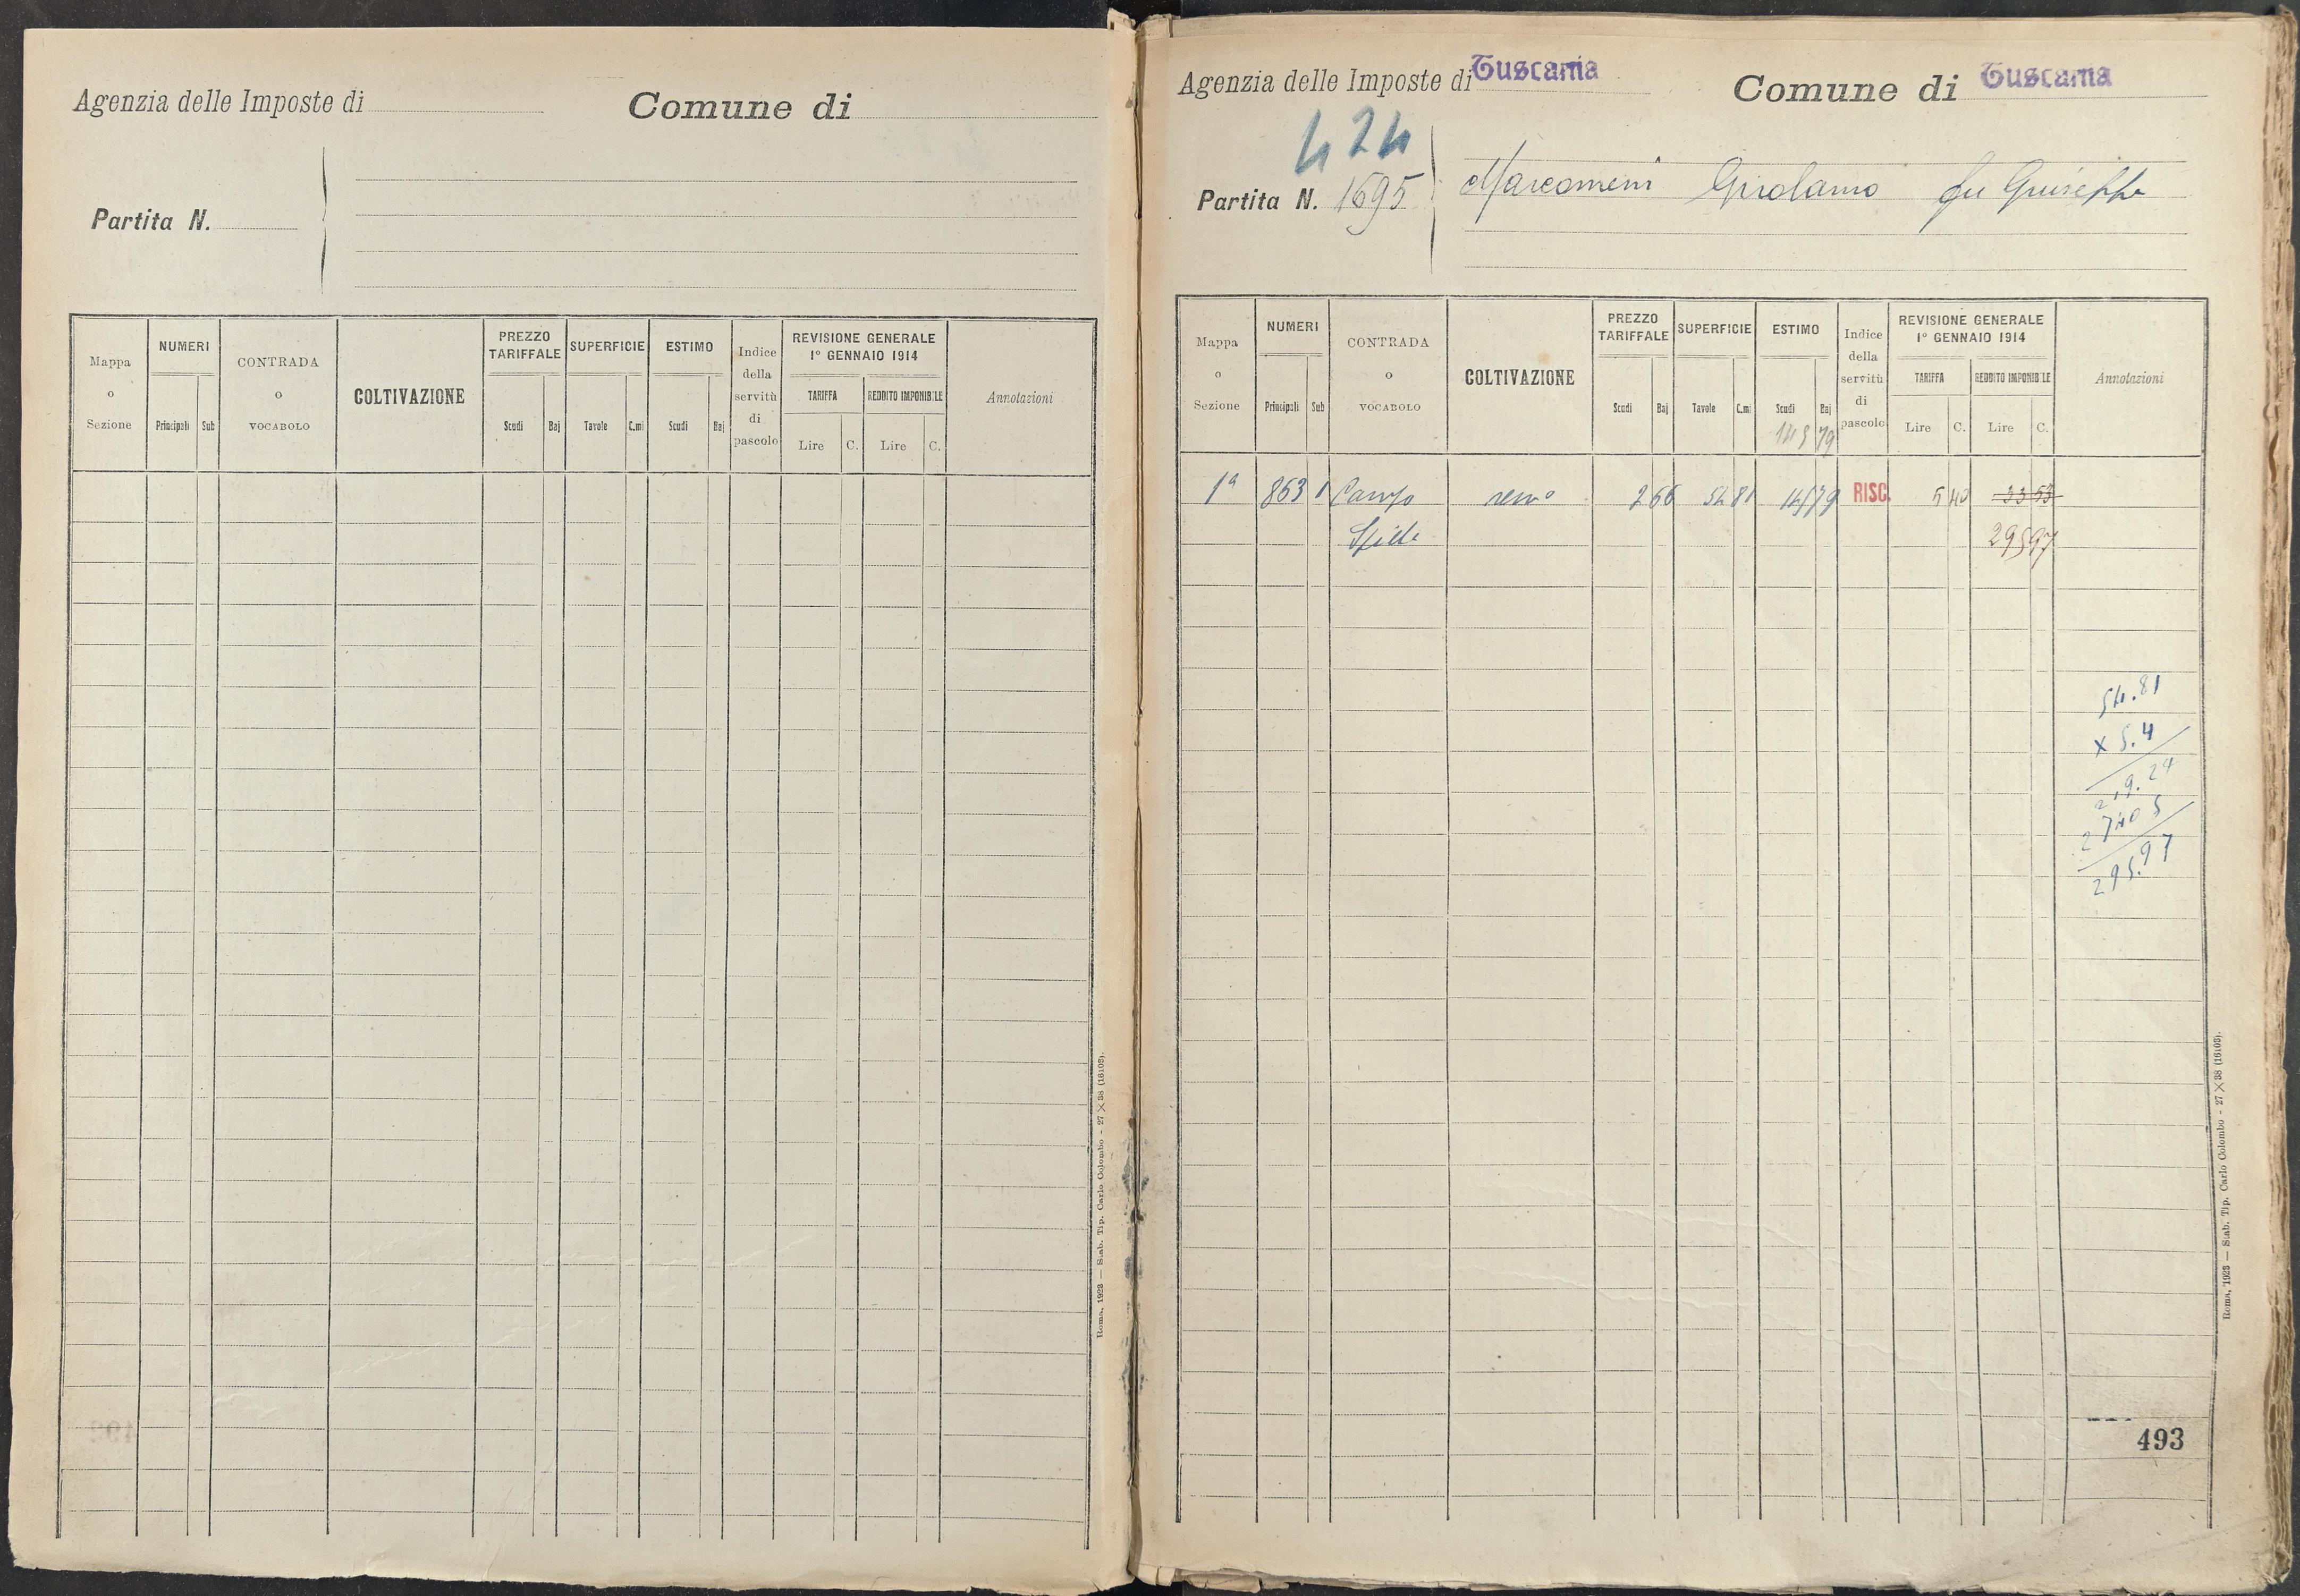 Agenzia delle Imposte di
Comune di
Partita N.
Mappa o Sezione
NUMERI
Principali
Sub
CONTRADA o VOCABOLO
COLTIVAZIONE
PREZZO TARIFFALE
Scudi
Baj
SUPERFICIE
Tavole
C.mi
ESTIMO
Scudi
Baj
Indice della servitù di pascolo
REVISIONE GENERALE
1° GENNAIO 1914
TARIFFA
REDDITO IMPONIBILE
Lire
C.
Lire
C.
Annotazioni
Roma, 1923 — Stab. Tip. Carlo Colombo - 27 X 38 (16103).
Agenzia delle Imposte di Tuscania
Comune di Tuscania
424
Partita N. 1695
Marcomeni Girolamo fu Giuseppe
Mappa o Sezione
NUMERI
Principali
Sub
CONTRADA o VOCABOLO
COLTIVAZIONE
PREZZO TARIFFALE
Scudi
Baj
SUPERFICIE
Tavole
C.mi
ESTIMO
Scudi
Baj
145 79
Indice della servitù di pascolo
REVISIONE GENERALE
1° GENNAIO 1914
TARIFFA
REDDITO IMPONIBILE
Lire
C.
Lire
C.
Annotazioni
1ª 863 1 Campo 2 66 54 81 145 79 RISC. 5 40 33 53
295 97
54.81
x 5.4
219.24
27405
295.97
493
Roma, 1923 — Stab. Tip. Carlo Colombo - 27 X 38 (16103).